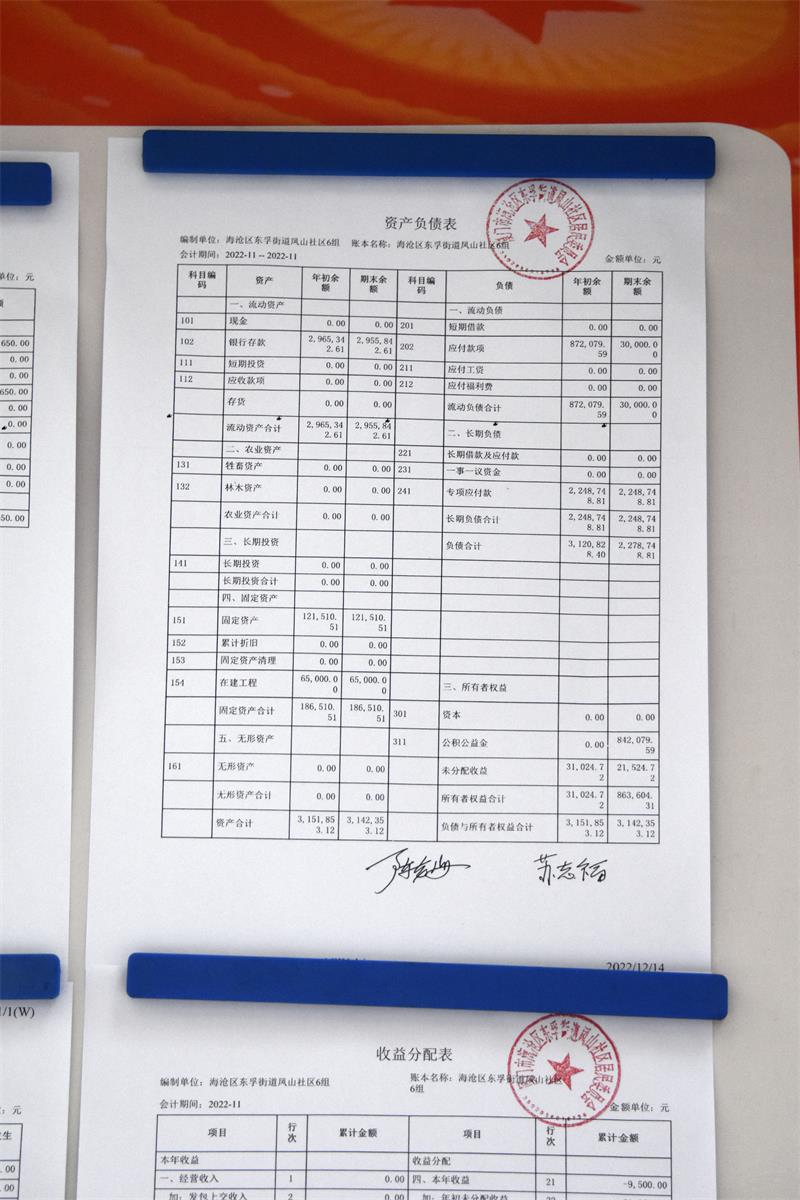 资产负债表
编制单位：海沧区东孚街道凤山社区6组 账本名称：海沧区东孚街道凤山社区6组
会计期间：2022-11 -- 2022-11 金额单位：元
科目编码 资产 年初余额 期末余额 科目编码 负债 年初余额 期末余额
一、流动资产 一、流动负债
101 现金 0.00 0.00 201 短期借款 0.00 0.00
102 银行存款 2,965,342.61 2,955,842.61 202 应付款项 872,079.59 30,000.00
111 短期投资 0.00 0.00 211 应付工资 0.00 0.00
112 应收款项 0.00 0.00 212 应付福利费 0.00 0.00
存货 0.00 0.00 流动负债合计 872,079.59 30,000.00
流动资产合计 2,965,342.61 2,955,842.61 二、长期负债
二、农业资产 221 长期借款及应付款 0.00 0.00
131 牲畜资产 0.00 0.00 231 一事一议资金 0.00 0.00
132 林木资产 0.00 0.00 241 专项应付款 2,248,748.81 2,248,748.81
农业资产合计 0.00 0.00 长期负债合计 2,248,748.81 2,248,748.81
三、长期投资 负债合计 3,120,828.40 2,278,748.81
141 长期投资 0.00 0.00
长期投资合计 0.00 0.00
四、固定资产
151 固定资产 121,510.51 121,510.51
152 累计折旧 0.00 0.00
153 固定资产清理 0.00 0.00
154 在建工程 65,000.00 65,000.00 三、所有者权益
固定资产合计 186,510.51 186,510.51 301 资本 0.00 0.00
五、无形资产 311 公积公益金 0.00 842,079.59
161 无形资产 0.00 0.00 未分配收益 31,024.72 21,524.72
无形资产合计 0.00 0.00 所有者权益合计 31,024.72 863,604.31
资产合计 3,151,853.12 3,142,353.12 负债与所有者权益合计 3,151,853.12 3,142,353.12
苏志福
2022/12/14
收益分配表
编制单位：海沧区东孚街道凤山社区6组 账本名称：海沧区东孚街道凤山社区6组
会计期间：2022-11 金额单位：元
项目 行次 累计金额 项目 行次 累计金额
本年收益 收益分配
一、经营收入 1 0.00 四、本年收益 21 -9,500.00
加：发包上交收入 2 0.00 加：年初未分配收益 22
单位：元
650.00
0.00
0.00
650.00
0.00
0.00
0.00
0.00
0.00
/1(W)
：元